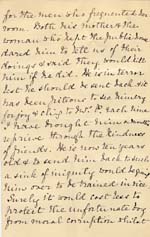 for the men who frequented his
room. Both his mother & the
woman who kept the Public House
dared him to tell us of their
doings & said they would kill
him if he did. He is in terror
lest he should be sent back. It
has been piteous to see him cry
for joy & cling to
I have brought him a months
reprieve through the kindness
of friends. He is now ten years
old & to send him back to such
a sink of iniquity would be giving
him over to be trained in vice
Surely it would cost less to
protect the unfortunate boy
from moral corruption whilst